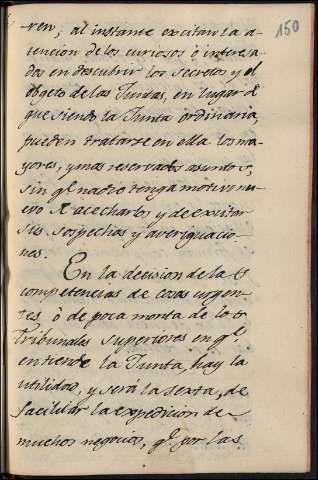 150
ren, al instante excitan la a-
tencion de los curiosos ó interesa-
dos en descubrir los secretos y el
objeto de las Juntas, en lugar de
que siendo la Junta ordinaria,
pueden tratarse en ella los ma-
yores, y mas reservados asuntos,
sin q.e nadie tenga motivo nu-
evo de acecharlos y de excitar
sus sospechas y averiguacio-
nes.
En la decision de las
competencias de cosas urgen-
tes ò de poca monta de los
Tribunales superiores en q.e
entiende la Junta, hay la
utilidad, y será la sexta, de
facilitar la expedicion de
muchos negocios, q.e por las